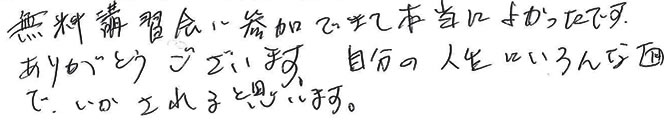 無料講習会に参加できて本当によかったです.
ありがとうございます 自分の人生にいろんな面
で.いかされると思います。